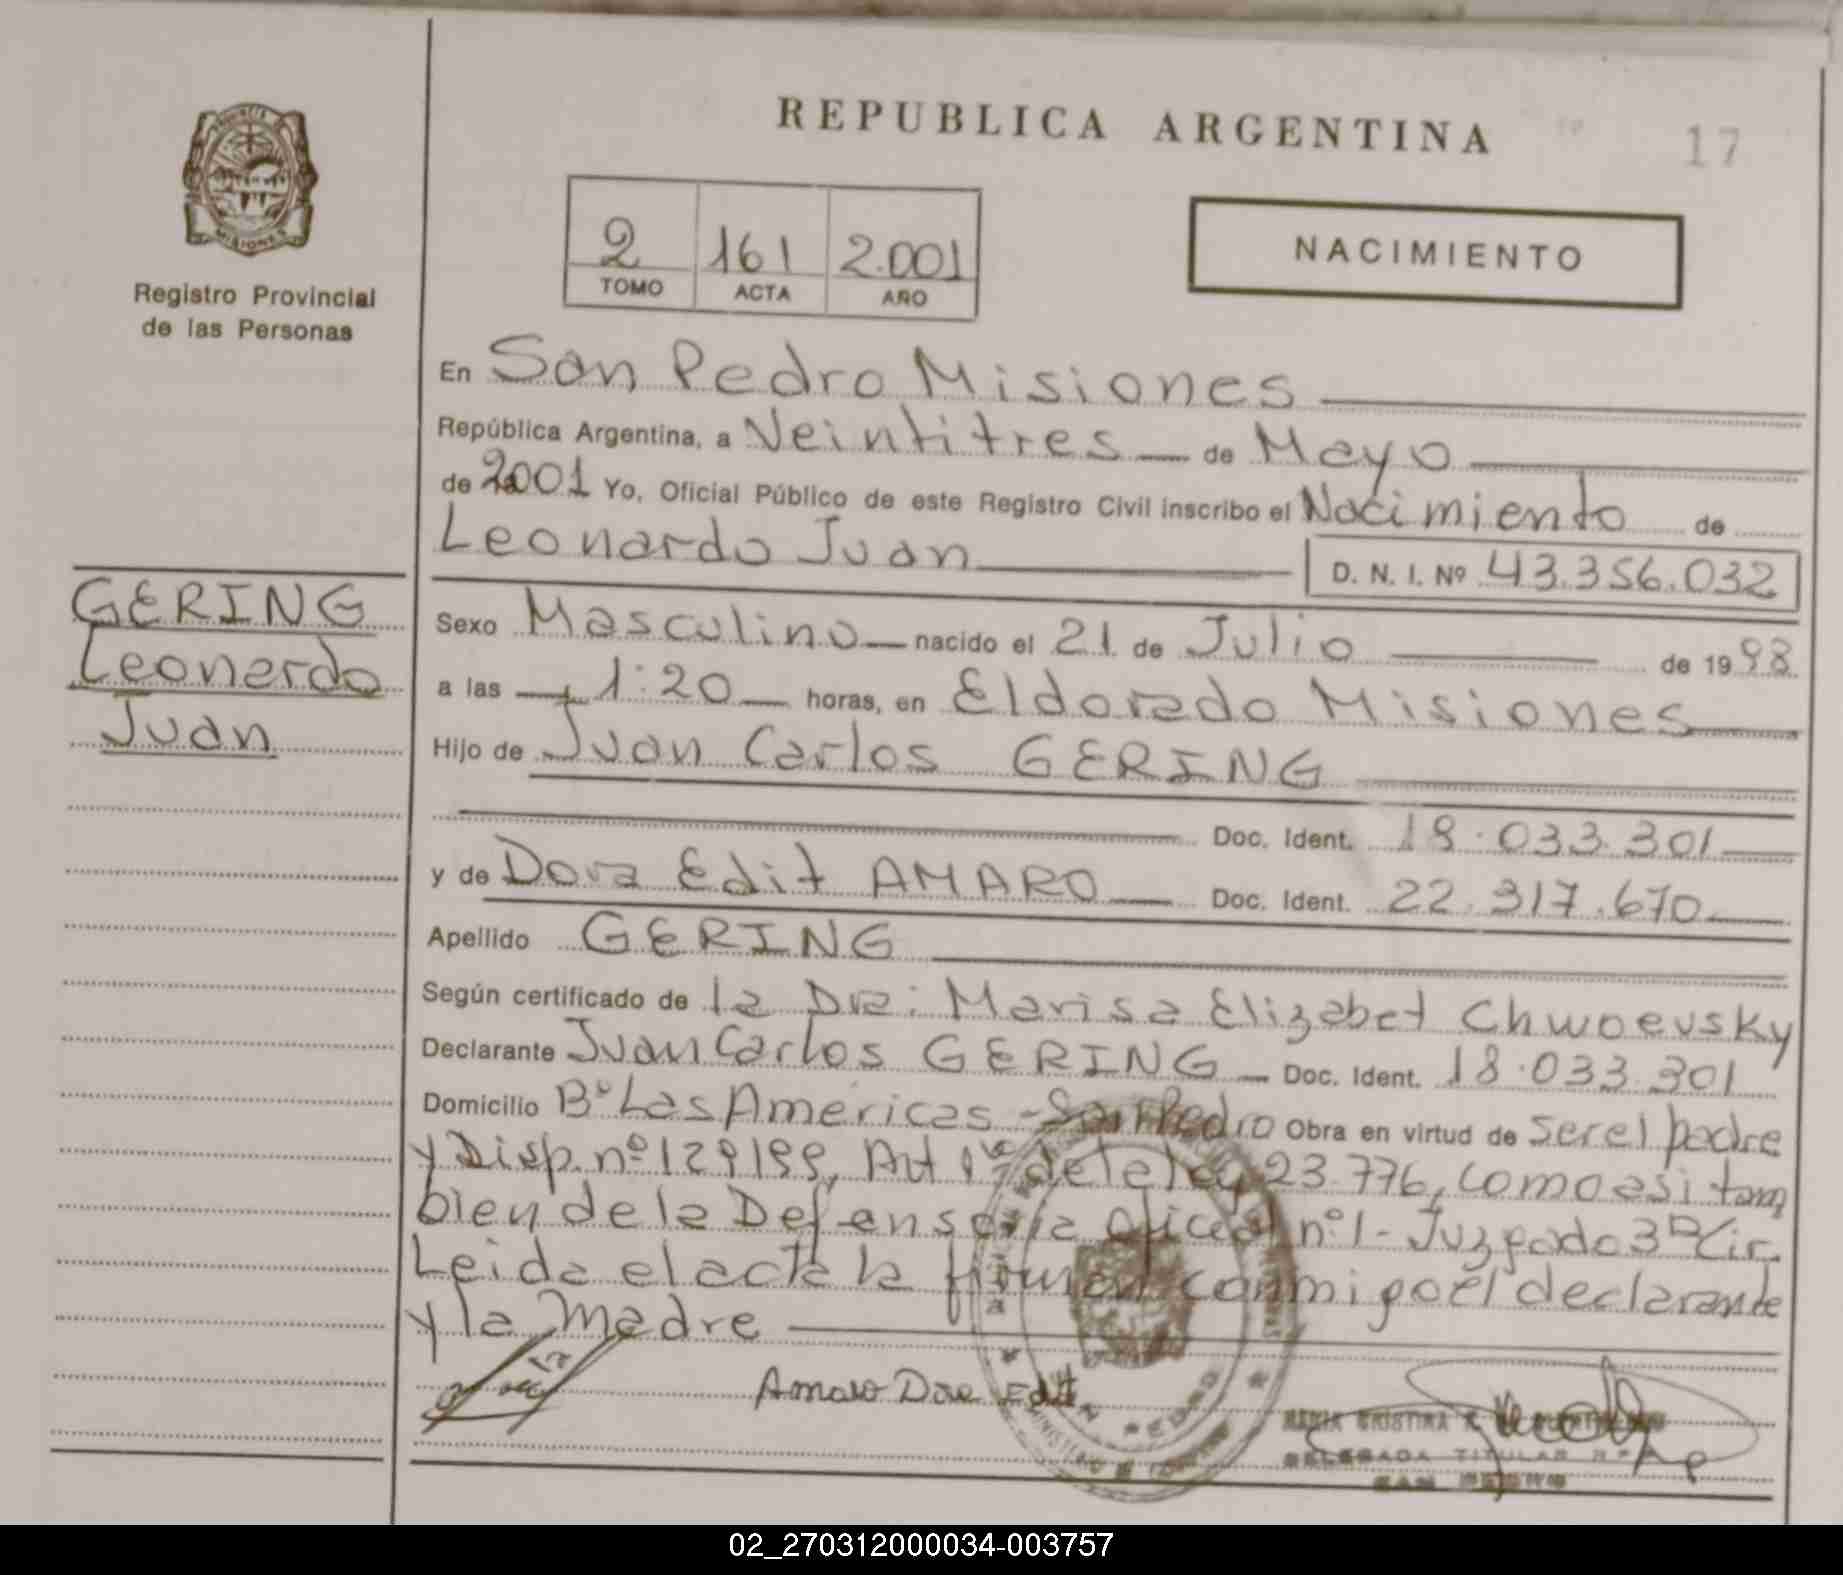 REPUBLICA ARGENTINA
17
PROVINCIA
MISIONES
Registro Provincial
de las Personas
2 161 2.001
TOMO ACTA AÑO
NACIMIENTO
En San Pedro Misiones
República Argentina, a Veintitres de Mayo
de 2001 Yo, Oficial Público de este Registro Civil inscribo el Nacimiento de
Leonardo Juan D. N. I. Nº 43.356.032
GERING
Leonardo
Juan
Sexo Masculino nacido el 21 de Julio de 1998
a las 1:20 horas, en Eldorado Misiones
Hijo de Juan Carlos GERING
Doc. Ident. 18.033.301
y de Dora Edit AMARO Doc. Ident. 22.317.670
Apellido GERING
Según certificado de la Dra: Marisa Elizabet Chwoevsky
Declarante Juan Carlos GERING Doc. Ident. 18.033.301
Domicilio Bº Las Americas - San Pedro Obra en virtud de ser el padre
y Disp. nº 129/99, Art 1º de la ley 23.776, como asi tam
bien de la Defensoria Oficial nº 1 - Juzgado 3ª Cir.
Leida el acta la firman conmigo el declarante
y la Madre
Amaro Dora Edit
MARIA CRISTINA
DELEGADA TITULAR R.P.
SAN PEDRO
02_270312000034-003757